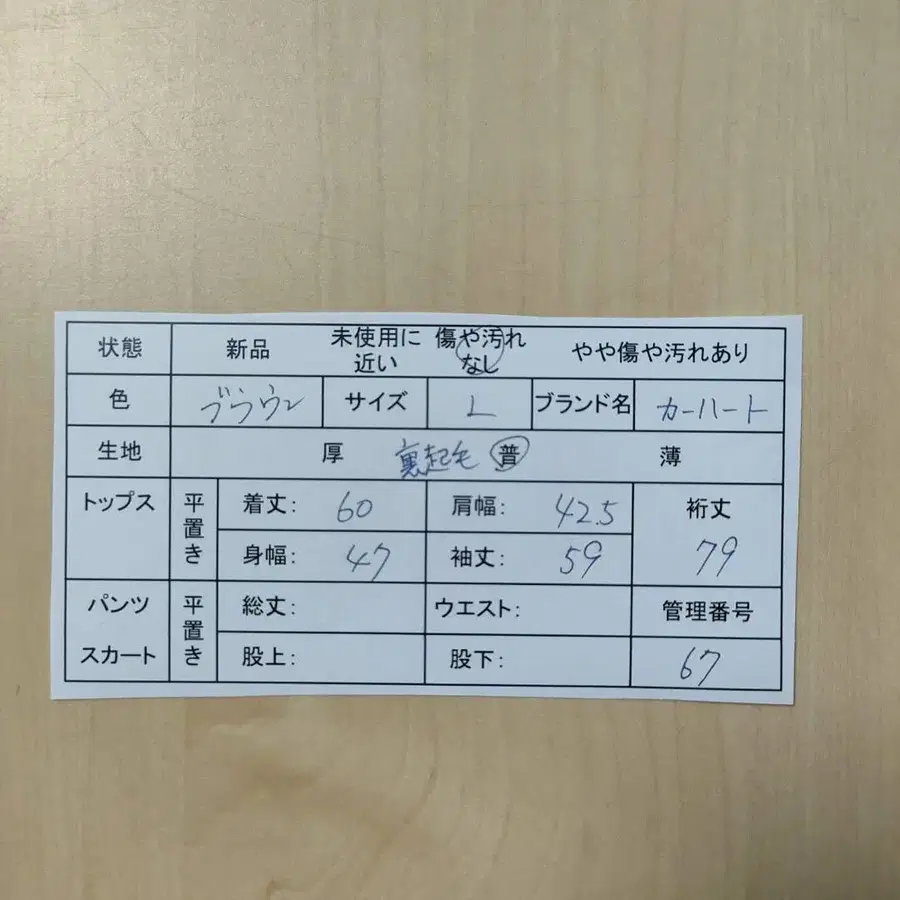 状態 新品 未使用に近い 傷や汚れなし やや傷や汚れあり
色 ブラウン サイズ L ブランド名 カーハート
生地 厚 裏起毛 普 薄
トップス 平置き 着丈: 60 肩幅: 42.5 裄丈
身幅: 47 袖丈: 59 79
パンツ 平置き 総丈: ウエスト: 管理番号
スカート 股上: 股下: 67